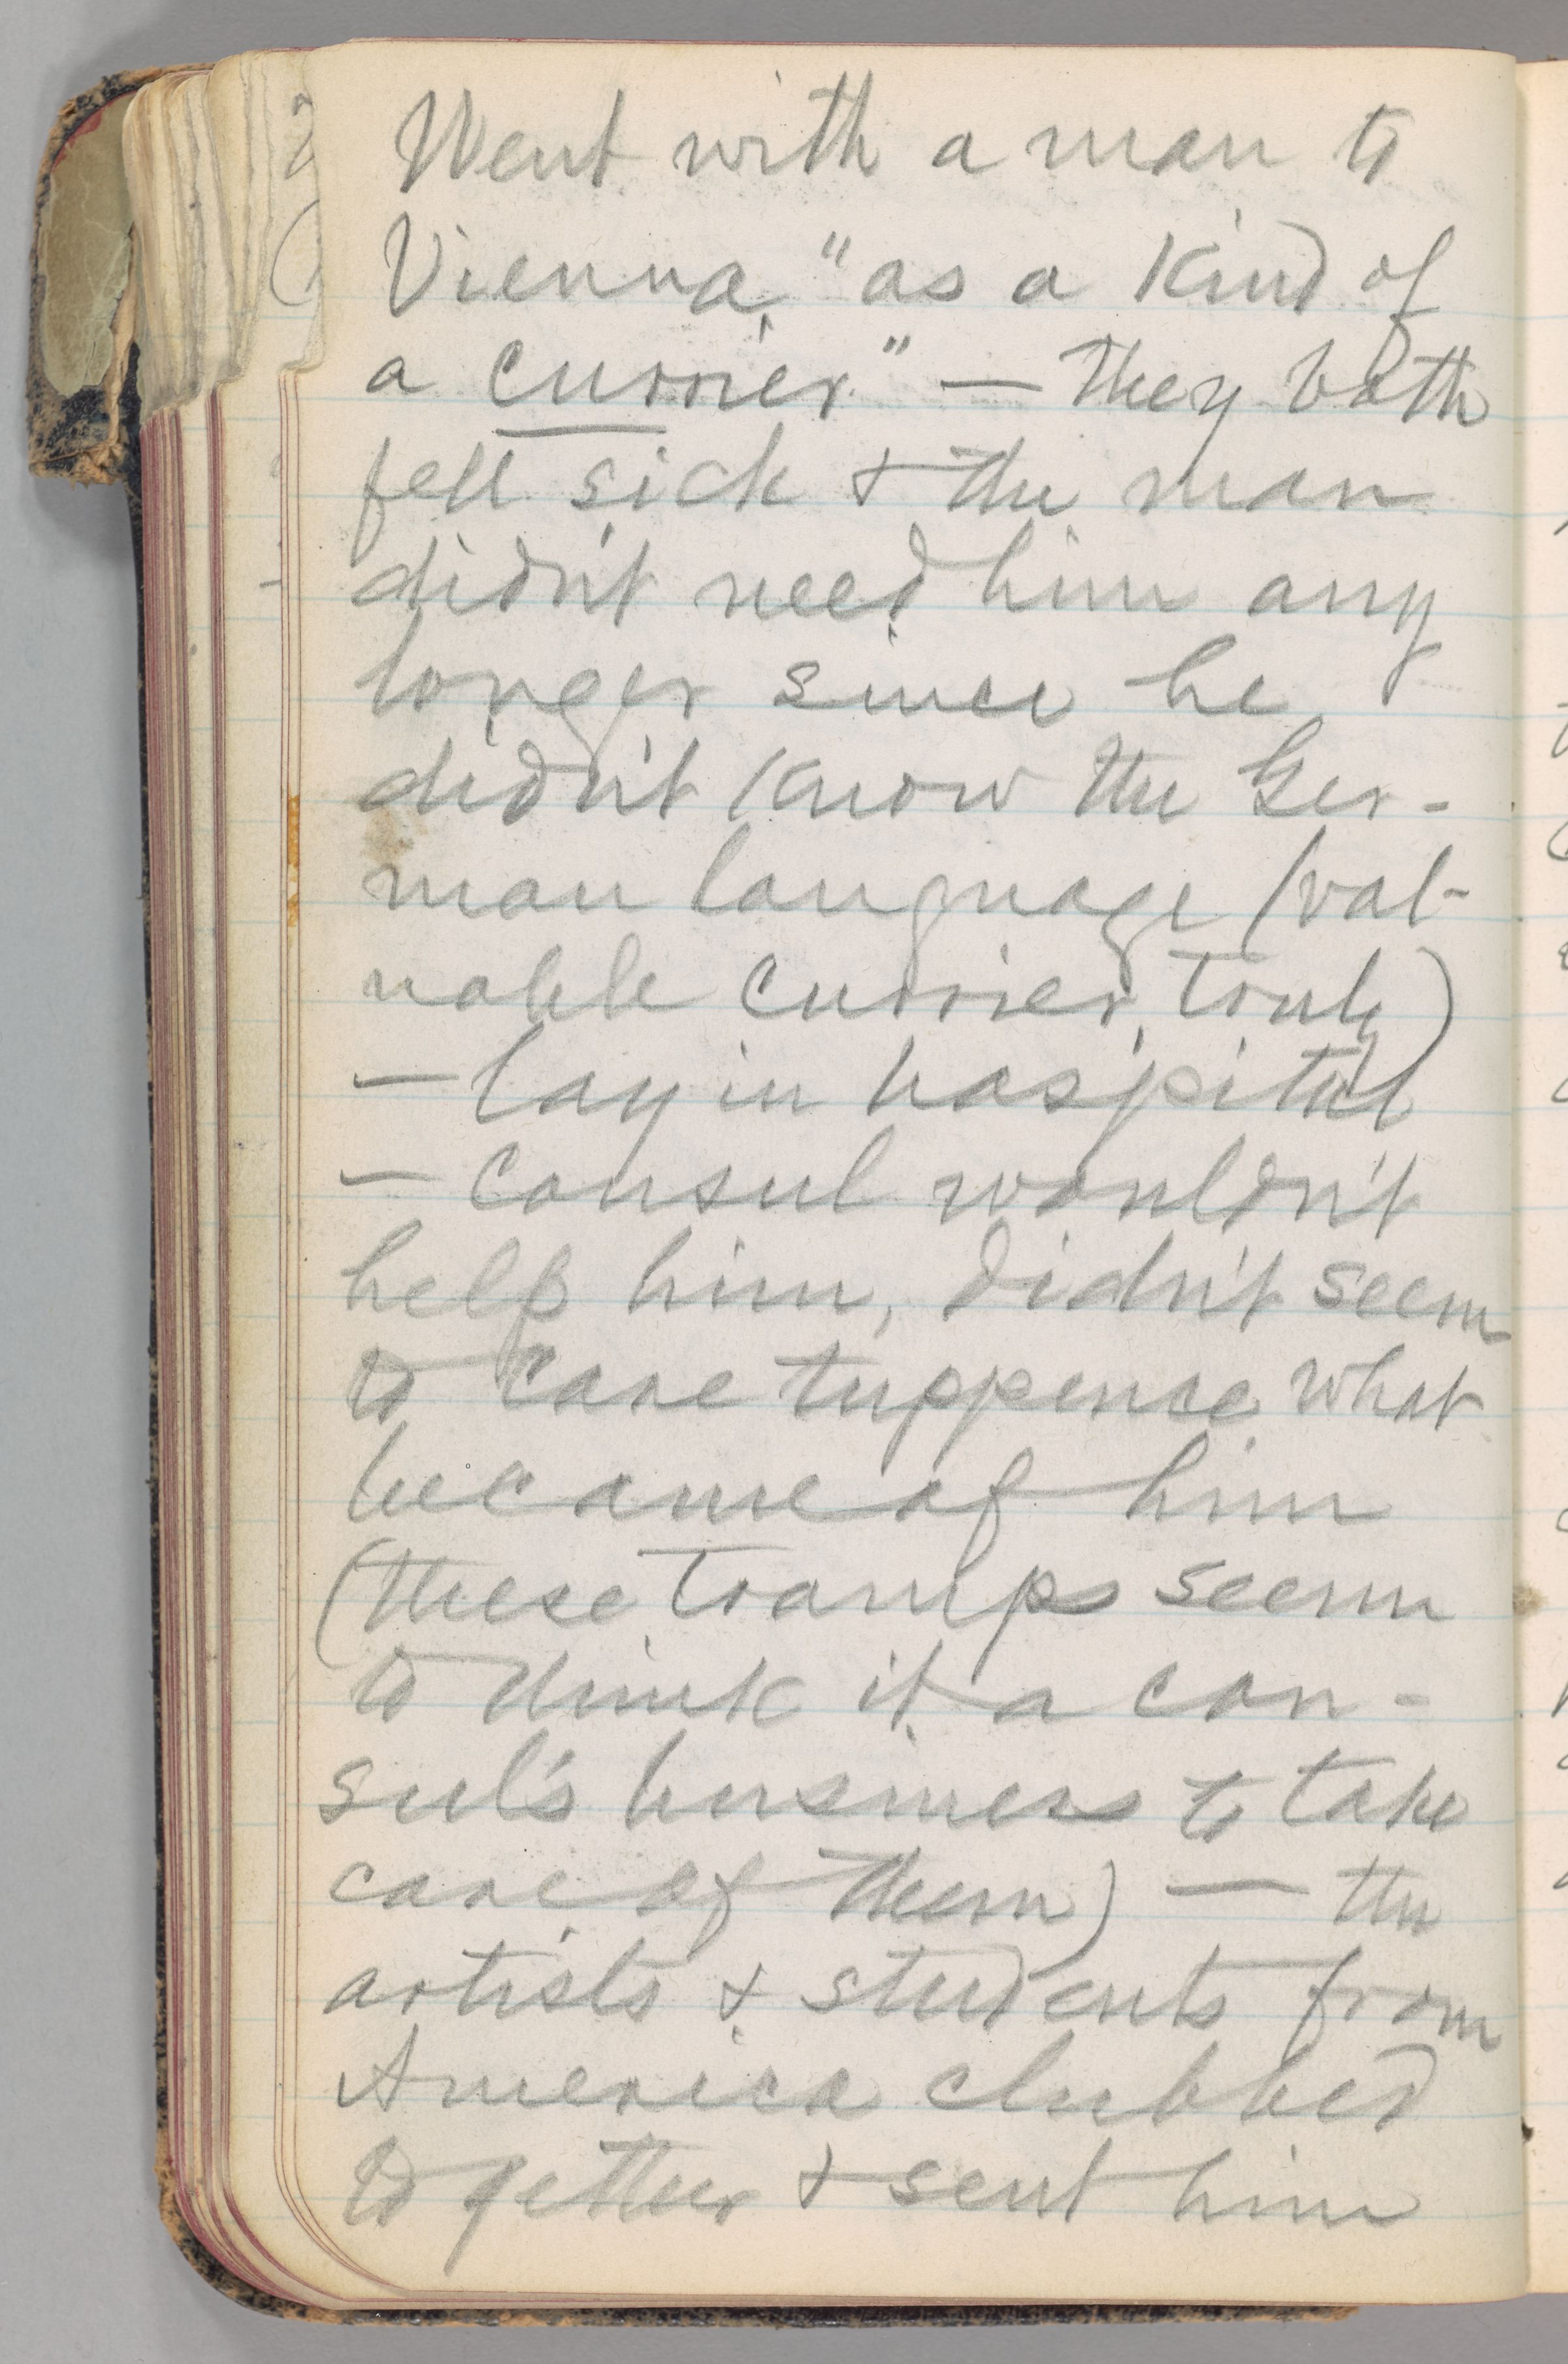 Went with a man to
Vienna, "as a kind of
a currier" — they both
fell sick & the man
didn't need him any
longer since he
didn't know the Ger-
man language (val-
uable currier, truly)
— lay in hospital
— consul wouldn't
help him, didn't seem
to care tuppence what
became of him
(these tramps seem
to think it a con-
sul's business to take
care of them) — the
artists & students from
America clubbed
together & sent him